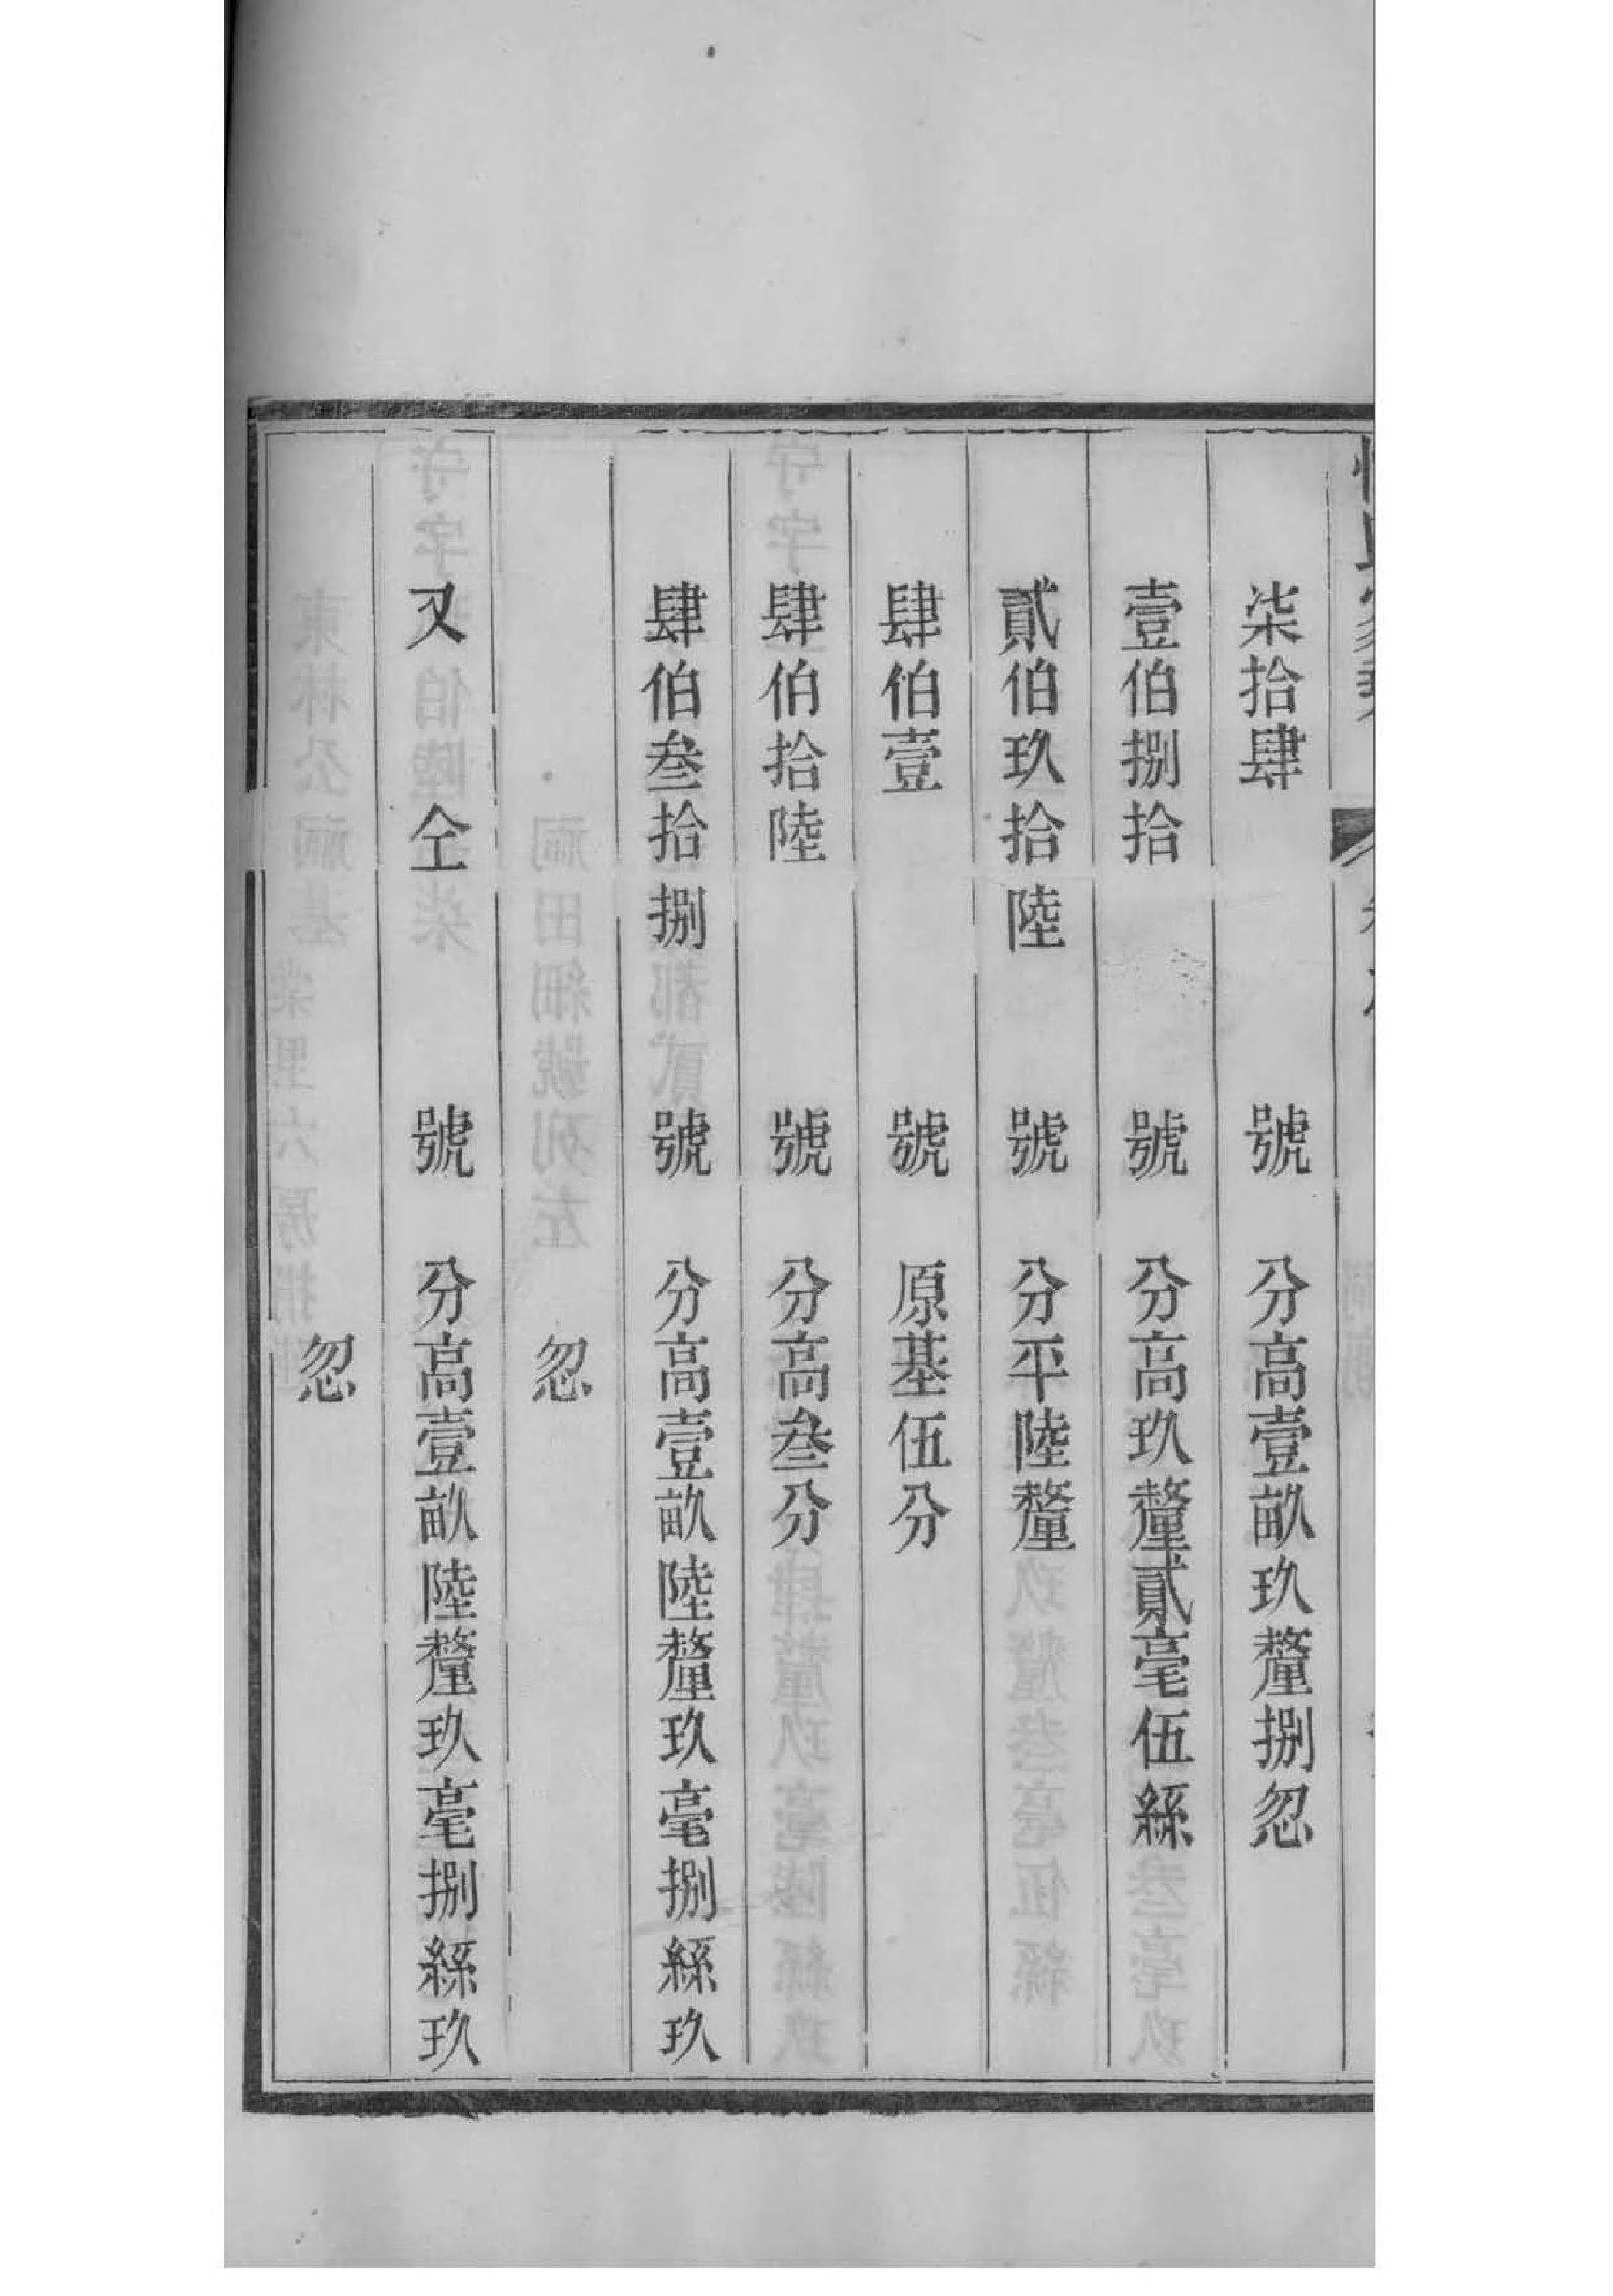 柒拾肆　號　分高壹畝玖釐捌忽
壹伯捌拾　號　分高玖釐貳毫伍絲
貳伯玖拾陸　號　分平陸釐
肆伯壹　號　原基伍分
肆伯拾陸　號　分高叄分
肆伯叄拾捌　號　分高壹畝陸釐玖毫捌絲玖
忽
又仝　號　分高壹畝陸釐玖毫捌絲玖
忽